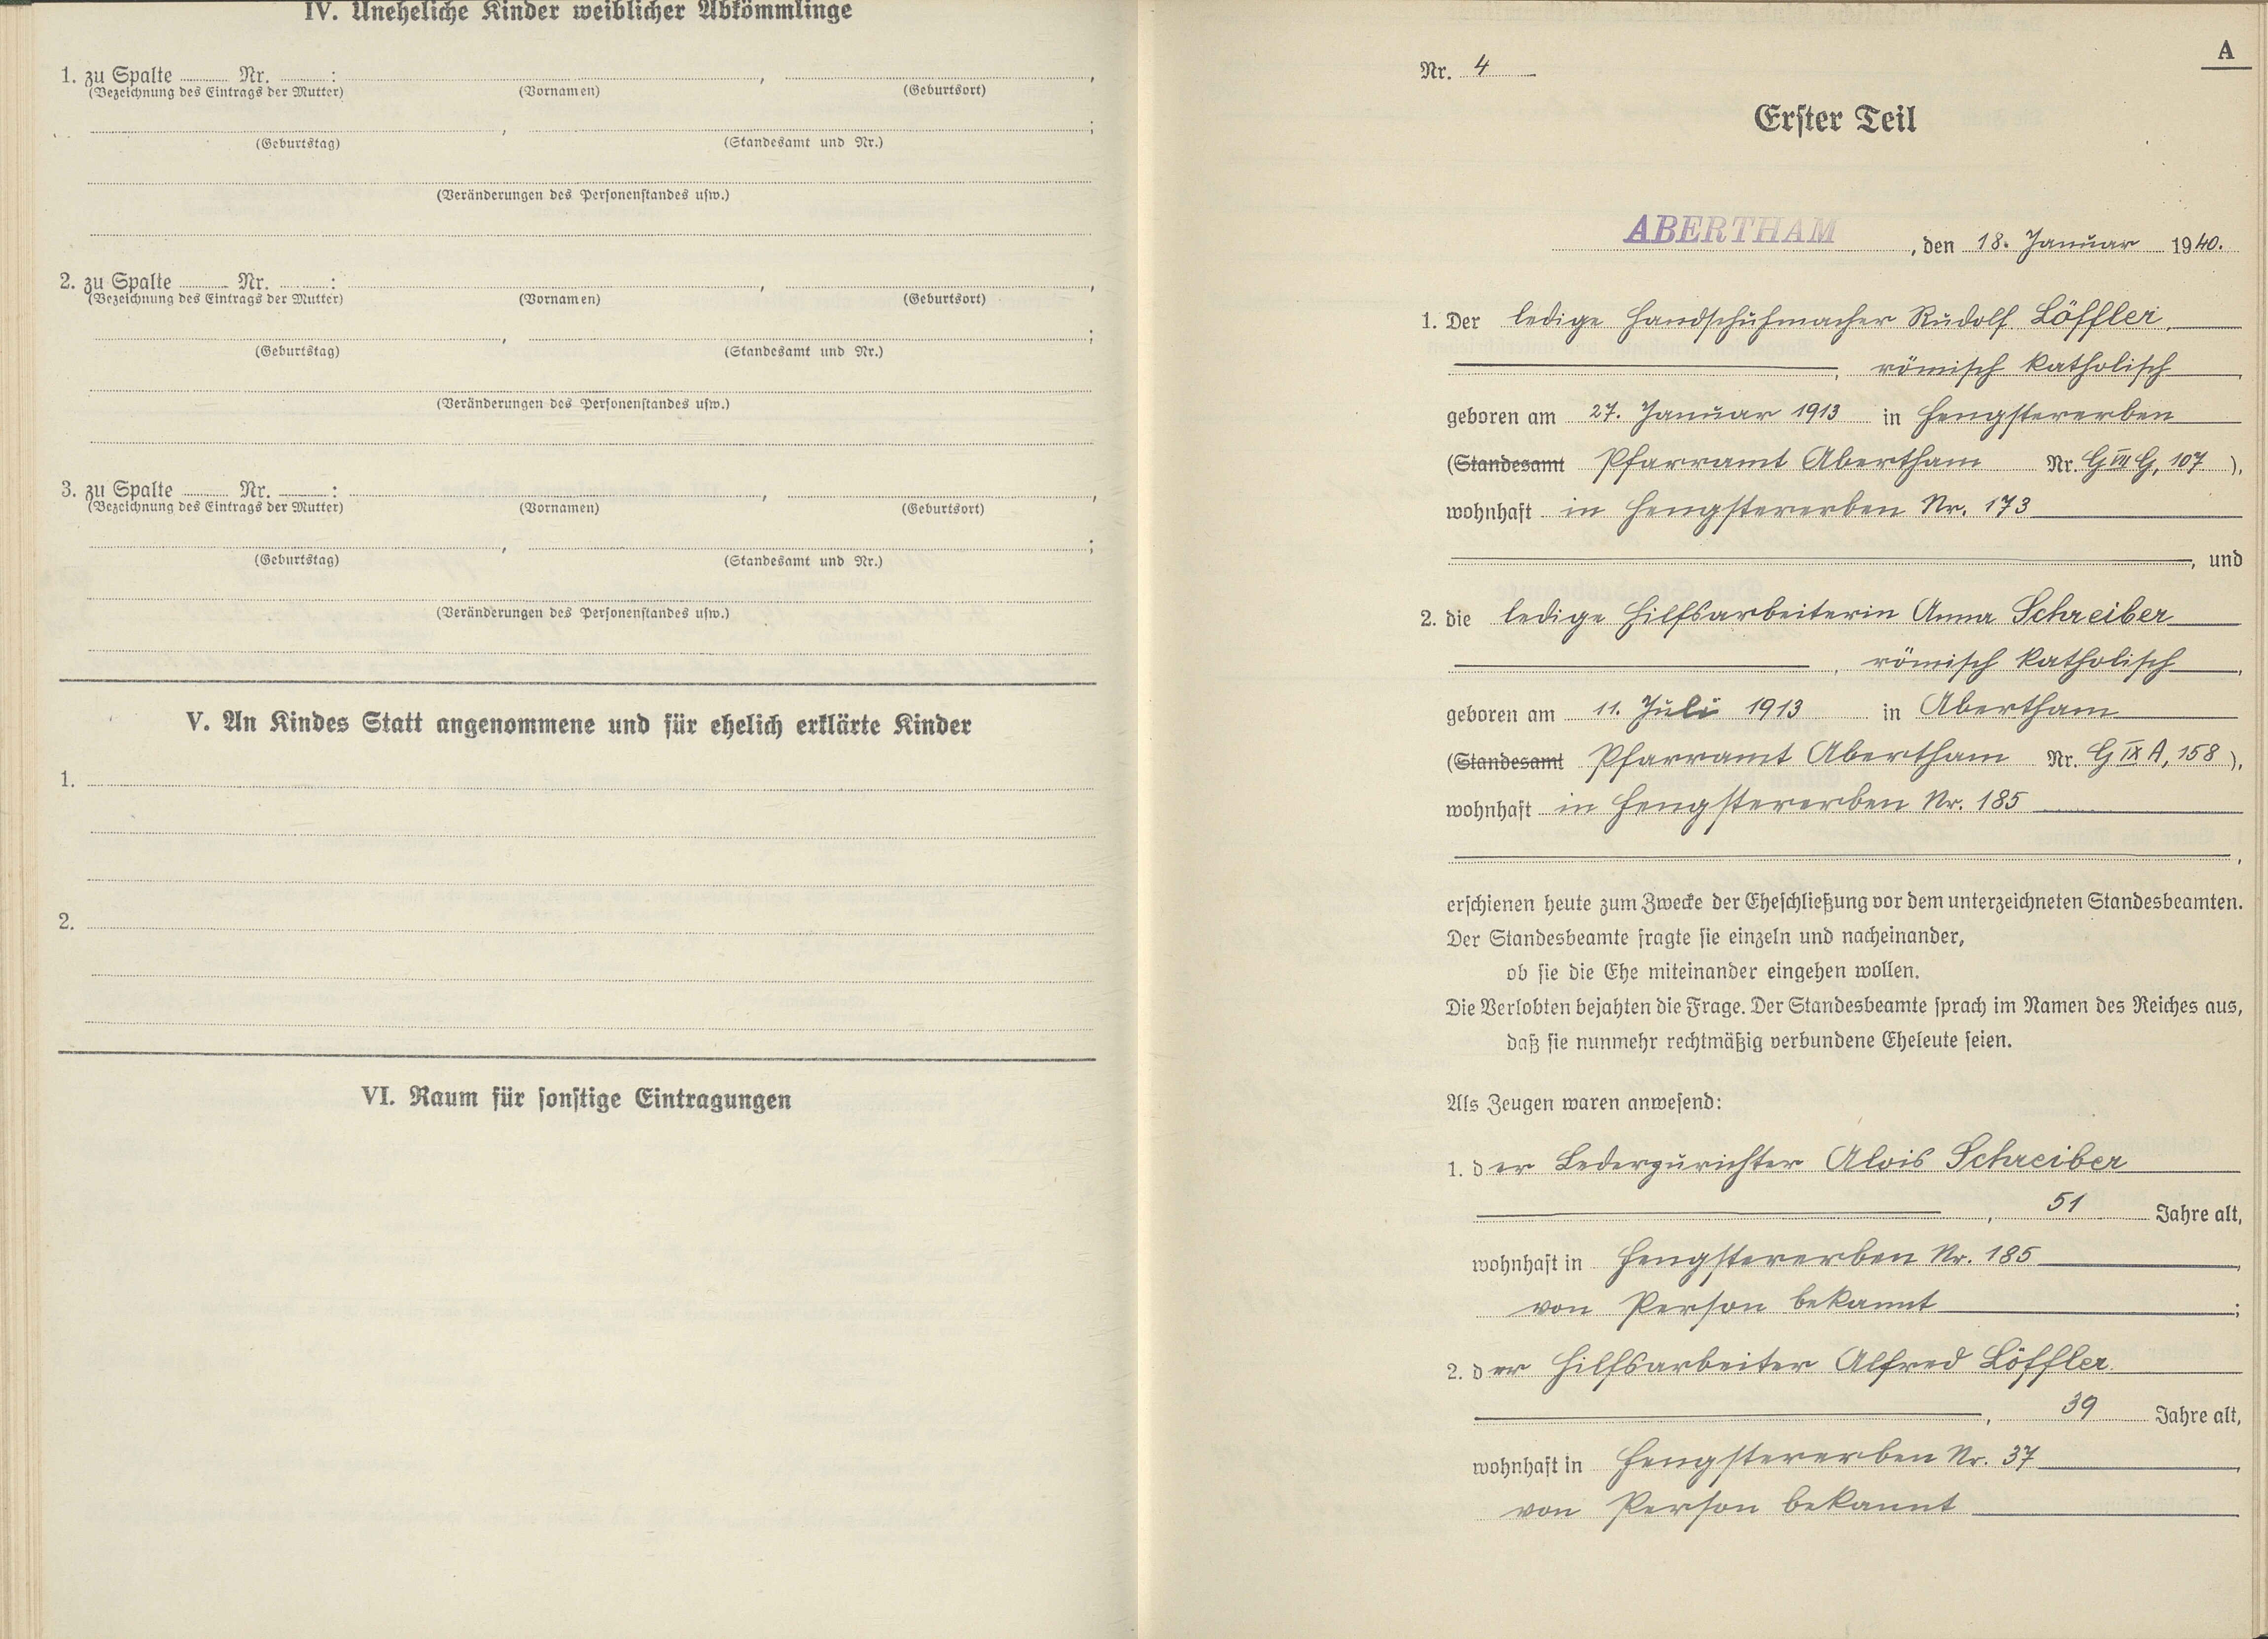 IV. Uneheliche Kinder weiblicher Abkömmlinge
1. zu Spalte ........ Nr. ........ : , ,
(Bezeichnung des Eintrags der Mutter) (Vornamen) (Geburtsort)
, ;
(Geburtstag) (Standesamt und Nr.)
(Veränderungen des Personenstandes usw.)
2. zu Spalte ........ Nr. ........ : , ,
(Bezeichnung des Eintrags der Mutter) (Vornamen) (Geburtsort)
, ;
(Geburtstag) (Standesamt und Nr.)
(Veränderungen des Personenstandes usw.)
3. zu Spalte ........ Nr. ........ : , ,
(Bezeichnung des Eintrags der Mutter) (Vornamen) (Geburtsort)
, ;
(Geburtstag) (Standesamt und Nr.)
(Veränderungen des Personenstandes usw.)
V. An Kindes Statt angenommene und für ehelich erklärte Kinder
1.
2.
VI. Raum für sonstige Eintragungen
A
Nr. 4
Erster Teil
ABERTHAM, den 18. Januar 1940.
1. Der ledige Handschuhmacher Rudolf Löffler,
, römisch katholisch,
geboren am 27. Januar 1913 in Hengstererben
(Standesamt Pfarramt Abertham Nr. G VII G, 107),
wohnhaft in Hengstererben Nr. 173
, und
2. die ledige Hilfsarbeiterin Anna Schreiber
, römisch katholisch,
geboren am 11. Juli 1913 in Abertham
(Standesamt Pfarramt Abertham Nr. G IX A, 158),
wohnhaft in Hengstererben Nr. 185
,
erschienen heute zum Zwecke der Eheschließung vor dem unterzeichneten Standesbeamten.
Der Standesbeamte fragte sie einzeln und nacheinander,
ob sie die Ehe miteinander eingehen wollen.
Die Verlobten bejahten die Frage. Der Standesbeamte sprach im Namen des Reiches aus,
daß sie nunmehr rechtmäßig verbundene Eheleute seien.
Als Zeugen waren anwesend:
1. der Lederzurichter Alois Schreiber
, 51 Jahre alt,
wohnhaft in Hengstererben Nr. 185,
von Person bekannt;
2. der Hilfsarbeiter Alfred Löffler
, 39 Jahre alt,
wohnhaft in Hengstererben Nr. 37,
von Person bekannt